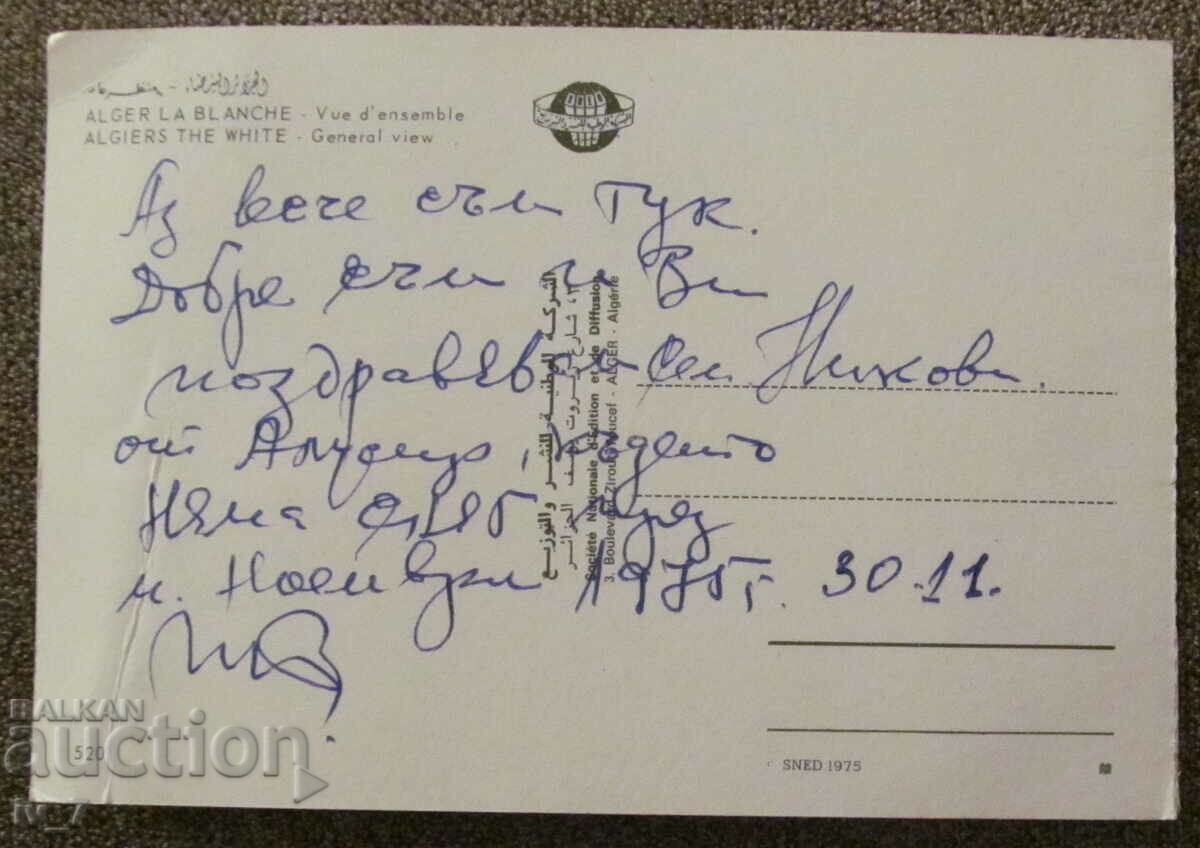 الجزائر البيضاء - منظر عام
ALGER LA BLANCHE - Vue d'ensemble
ALGIERS THE WHITE - General view
Аз вече съм тук.
Добре съм и Ви
поздравявам Сем. Никови.
от Алжир, където
няма сняг през
м. Ноември 1975 г. 30.11.
الشركة الوطنية للنشر والتوزيع
٣، شارع زيروت يوسف الجزائر
Société Nationale d'Édition et de Diffusion
3. Boulevard Zirout Youcef - ALGER - Algérie
520
SNED 1975
BALKAN
auction
iv_7